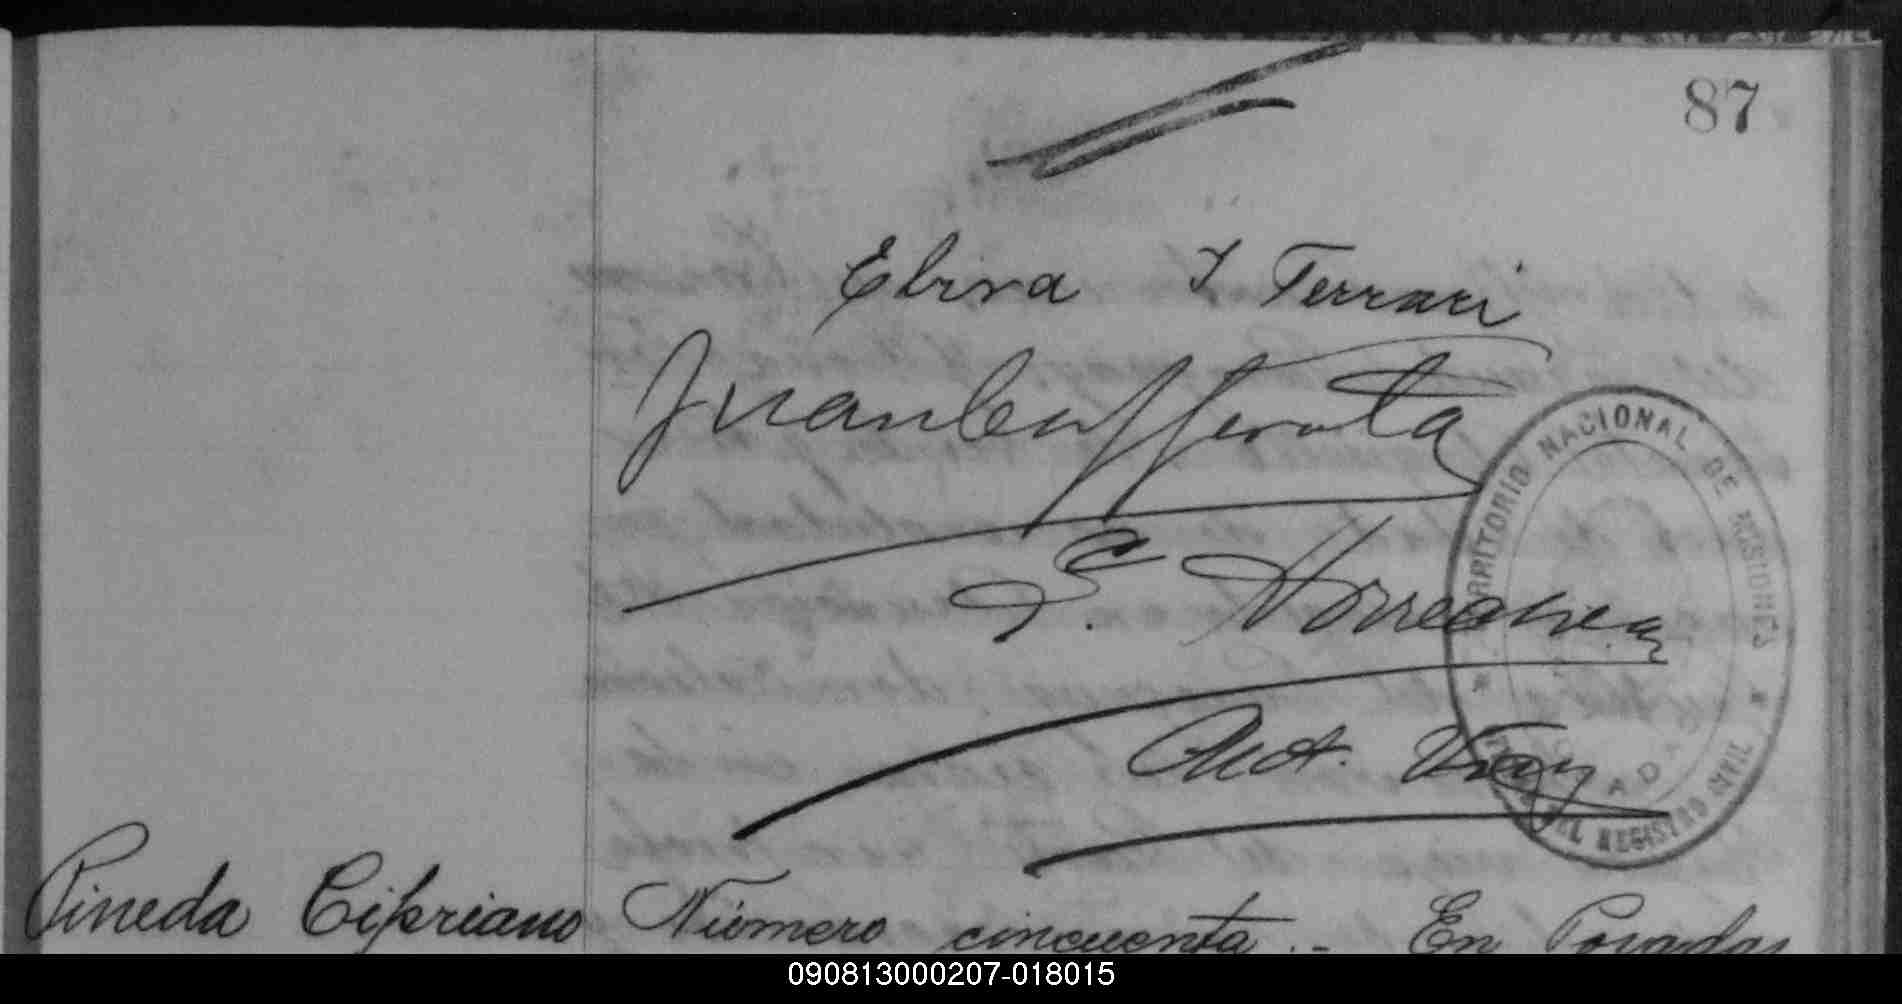 87
Elvira I Ferrari
Juan
E.
Act.
TERRITORIO NACIONAL DE MISIONES
DEL REGISTRO CIVIL
POSADAS
Pineda Cipriano Número cincuenta.- En Posadas
090813000207-018015